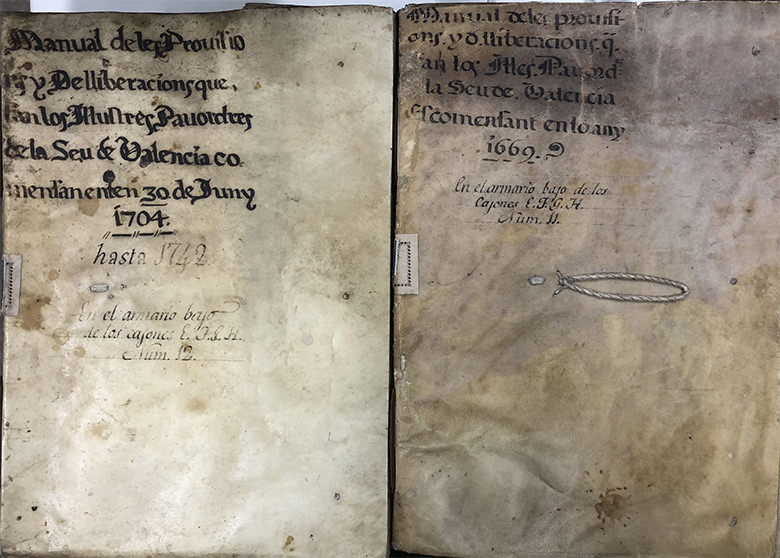 Manual de les Provisio
ns y Delliberacions que,
fan los Illustres Pavordres
de la Seu de Valencia co.
mensanenten 30 de Juny
1704.
hasta 1742
En el armario bajo
de los cajones E. F. G. H.
Núm. 12.
Manual de les provisi
ons. y d.lliberacions. q̃.
fan los Illes. Pavord.
la Seu de. Valencia
Escomensant en lo any
1669.
En el armario bajo de los
Cajones E. F. G. H.
Núm. 11.